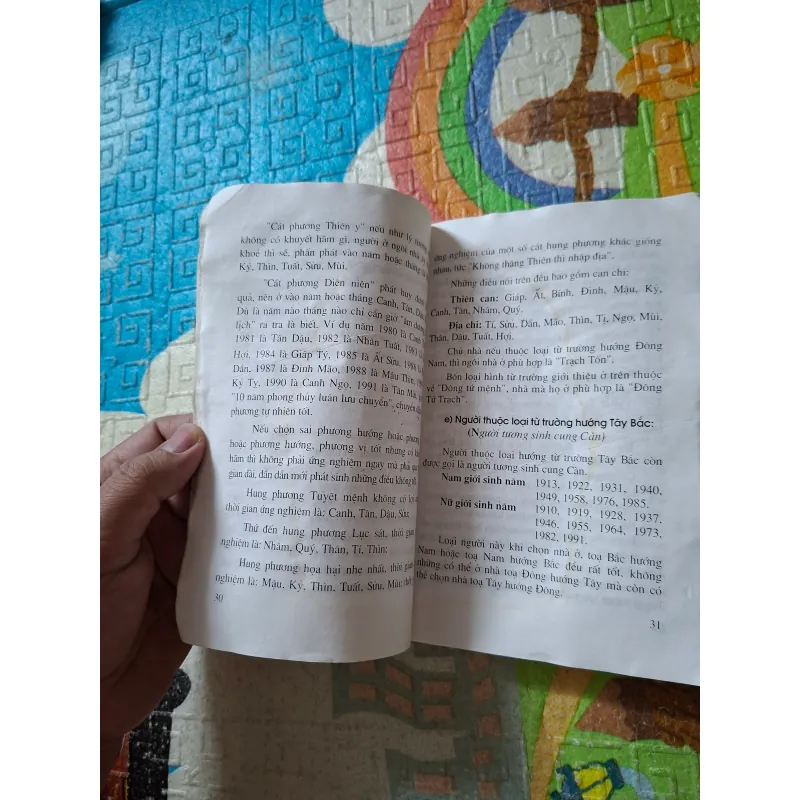 "Cát phương Thiên y" nếu như lý tưởng
không có khuyết hãm gì, người ở ngôi nhà
khoẻ thì sẽ, phấn phát vào năm hoặc tháng
Kỷ, Thìn, Tuất, Sửu, Mùi.
"Cát phương Diên niên" phát huy
quả, nên ở vào năm hoặc tháng Canh, Tân,
Dù là năm nào tháng nào chỉ cần giở "âm dương
lịch" ra tra là biết. Ví dụ năm 1980 là Canh
1981 là Tân Dậu, 1982 là Nhâm Tuất, 1983
Hợi, 1984 là Giáp Tý, 1985 là Ất Sửu, 1986
Dần, 1987 là Đinh Mão, 1988 là Mậu Thìn,
Kỷ Tỵ, 1990 là Canh Ngọ, 1991 là Tân Mùi,
"10 năm phong thủy luân lưu chuyển", chuyển
phương tự nhiên tốt.
Nếu chọn sai phương hướng hoặc phương
hoặc phương hướng, phương vị tốt nhưng có
hãm thì không phải ứng nghiệm ngay mà phải qua
gian dài, dần dần mới phát sinh những điều không
Hung phương Tuyệt mệnh không có lợi
thời gian ứng nghiệm là: Canh, Tân, Dậu, Sửu.
Thứ đến hung phương Lục sát, thời gian
nghiệm là: Nhâm, Quý, Thân, Tí, Thìn;
Hung phương họa hại nhẹ nhất, thời gian
nghiệm là: Mậu, Kỷ, Thìn, Tuất, Sửu, Mùi;
30
ứng nghiệm của một số cát hung phương khác giống
nhau, tức "Không thặng Thiên thì nhập địa".
Những điều nói trên đều bao gồm can chi:
Thiên can: Giáp, Ất, Bính, Đinh, Mậu, Kỷ,
Canh, Tân, Nhâm, Quý.
Địa chi: Tí, Sửu, Dần, Mão, Thìn, Tị, Ngọ, Mùi,
Thân, Dậu, Tuất, Hợi.
Chủ nhà nếu thuộc loại từ trường hướng Đông
Nam, thì ngôi nhà ở phù hợp là "Trạch Tốn".
Bốn loại hình từ trường giới thiệu ở trên thuộc
về "Đông tứ mệnh", nhà mà họ ở phù hợp là "Đông
Tứ Trạch".
e) Người thuộc loại từ trường hướng Tây Bắc:
(Người tương sinh cung Càn)
Người thuộc loại hướng từ trường Tây Bắc còn
được gọi là người tương sinh cung Càn.
Nam giới sinh năm 1913, 1922, 1931, 1940,
1949, 1958, 1976, 1985.
Nữ giới sinh năm 1910, 1919, 1928, 1937,
1946, 1955, 1964, 1973,
1982, 1991.
Loại người này khi chọn nhà ở, toạ Bắc hướng
Nam hoặc toạ Nam hướng Bắc đều rất tốt, không
những có thể ở nhà toạ Đông hướng Tây mà còn có
thể chọn nhà toạ Tây hướng Đông.
31